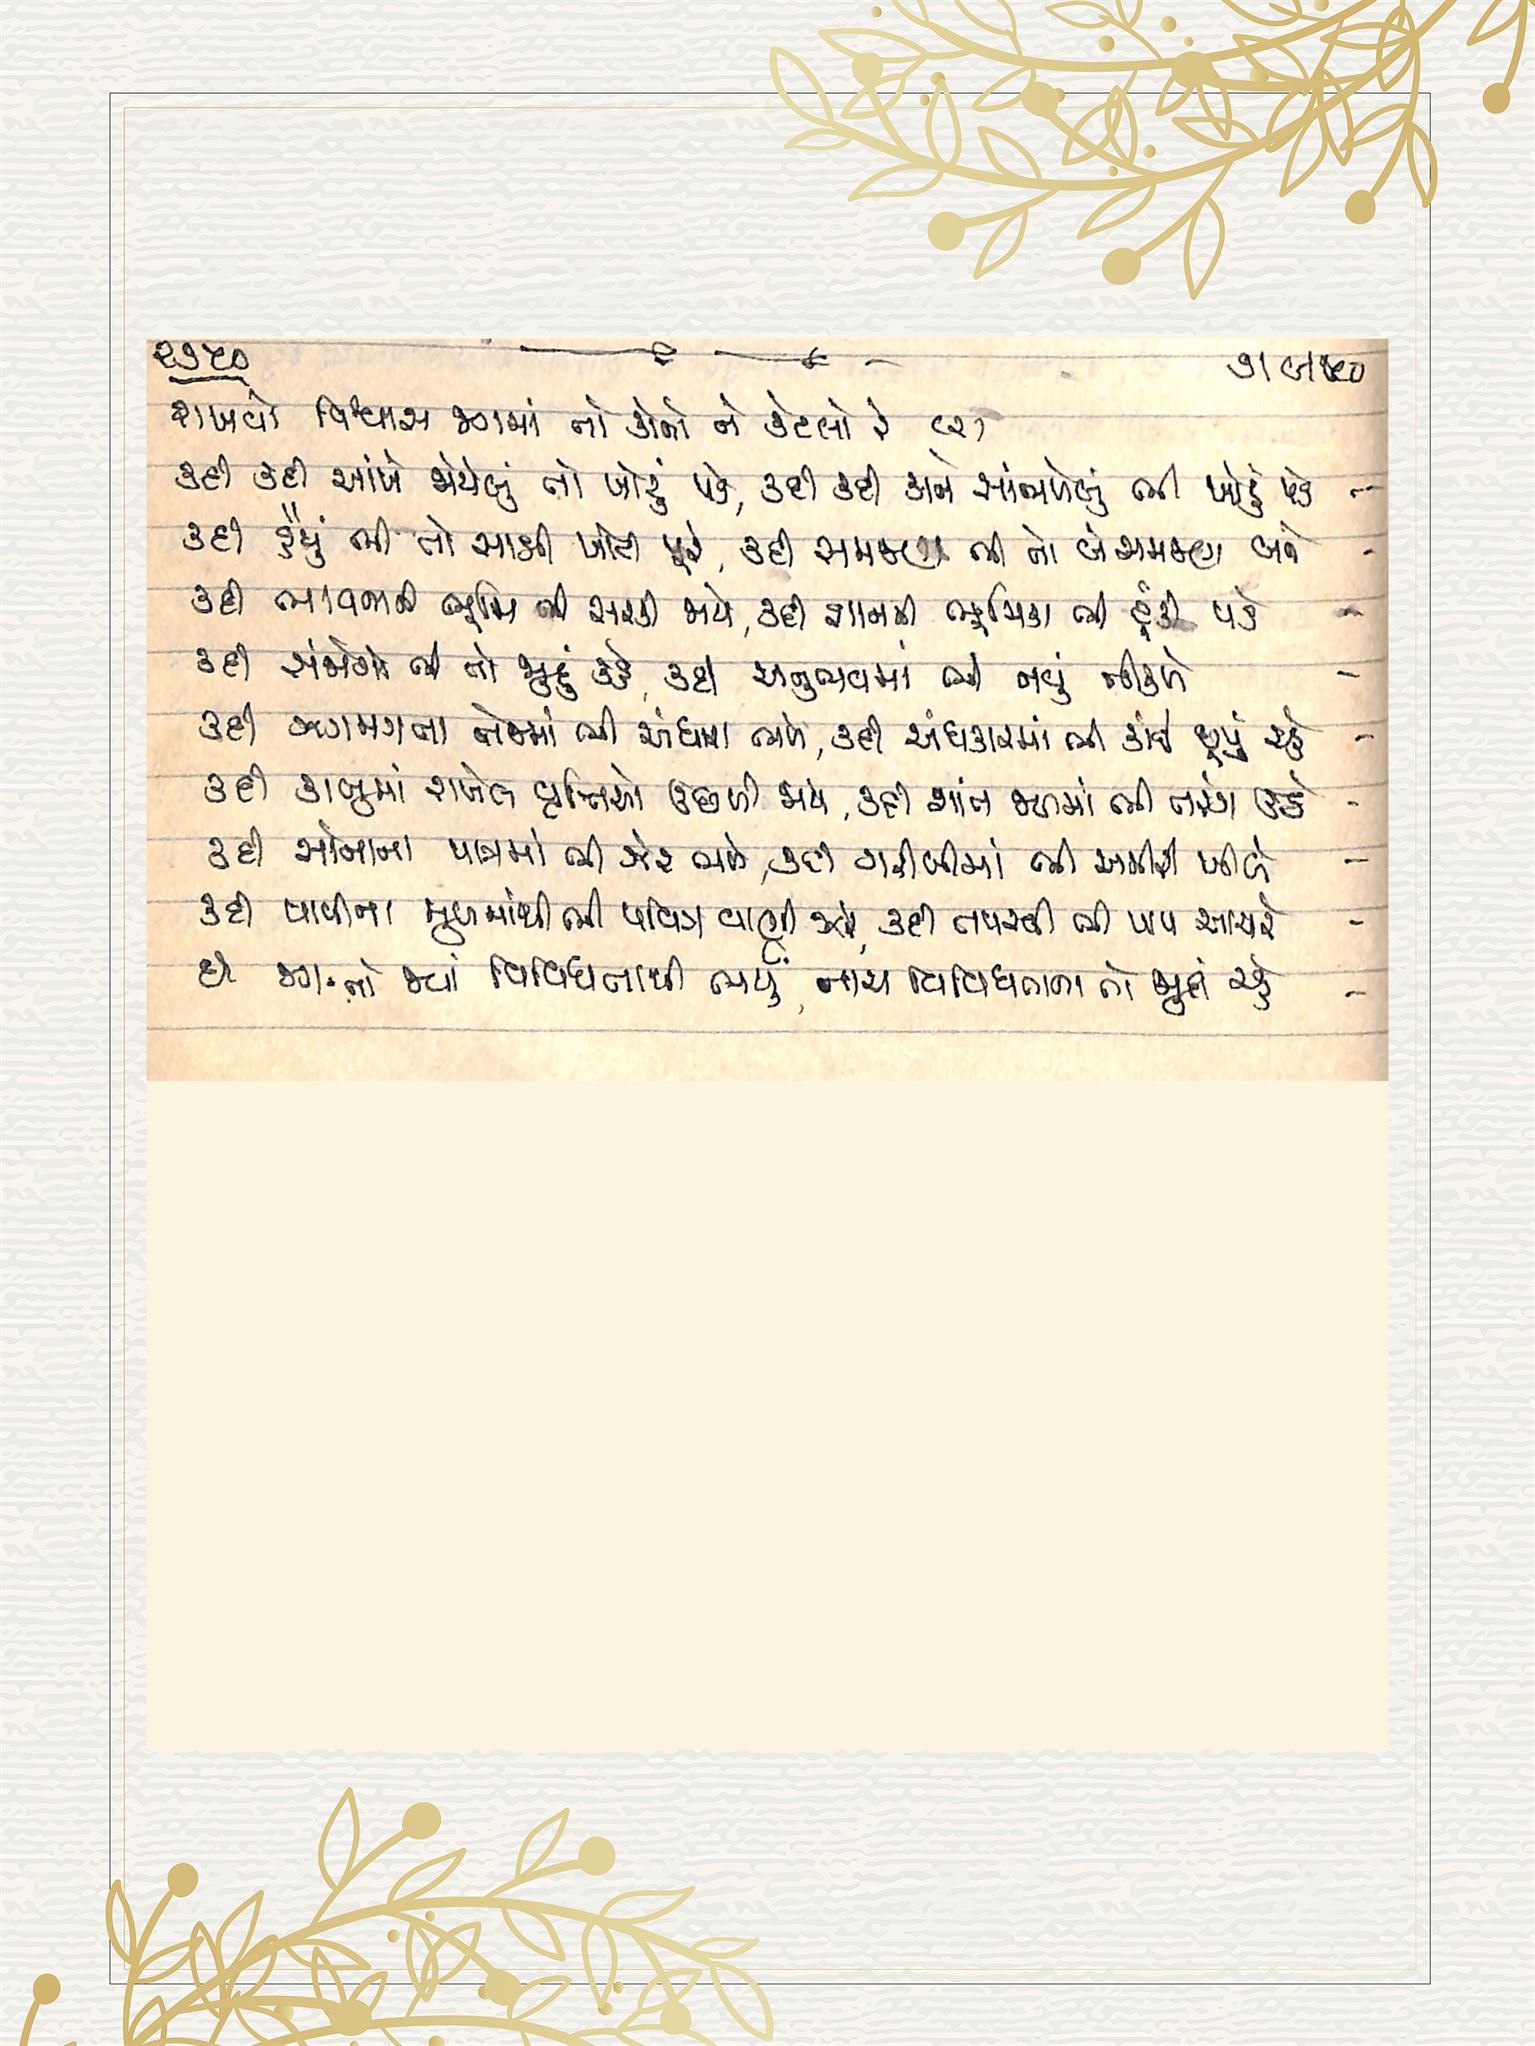 ૨૭૫૦
રાખવો વિશ્વાસ જગમાં તો કોનો ને કેટલો રે (૨)
કદી કદી આંખે જોયેલું તો ખોટું પડે, કદી કદી કાને સાંભળેલું ભી ખોટું પડે
કદી હૈયું ભી તો સાક્ષી ખોટી પૂરે, કદી સમજણ ભી તો બેસમજણ બને
કદી ભાવનાની ભૂમિ ભી સરકી જાયે, કદી જ્ઞાનની ભૂમિકા ભી ટૂંકી પડે
કદી સંજોગો ભી તો જુદું કહે, કદી અનુભવમાં ભી નવું નીકળે
કદી ઝગમગતા તેજમાં ભી અંધારા ભળે, કદી અંધકારમાં ભી કાંઈ છૂપું રહે
કદી કાબુમાં રાખેલ વૃત્તિઓ ઉછળી જાય, કદી શાંત જળમાં ભી તરંગ ઉઠે
કદી સોનાના પાત્રમાં ભી ઝેર ભળે, કદી ગરીબીમાં ભી અમીરી ખીલે
કદી પાપીના મુખમાંથી ભી પવિત્ર વાણી ઝરે, કદી તપસ્વી ભી પાપ આચરે
છે જગ તો જ્યાં વિવિધતાથી ભર્યું, નાચ વિવિધતાના તો થાતાં રહે